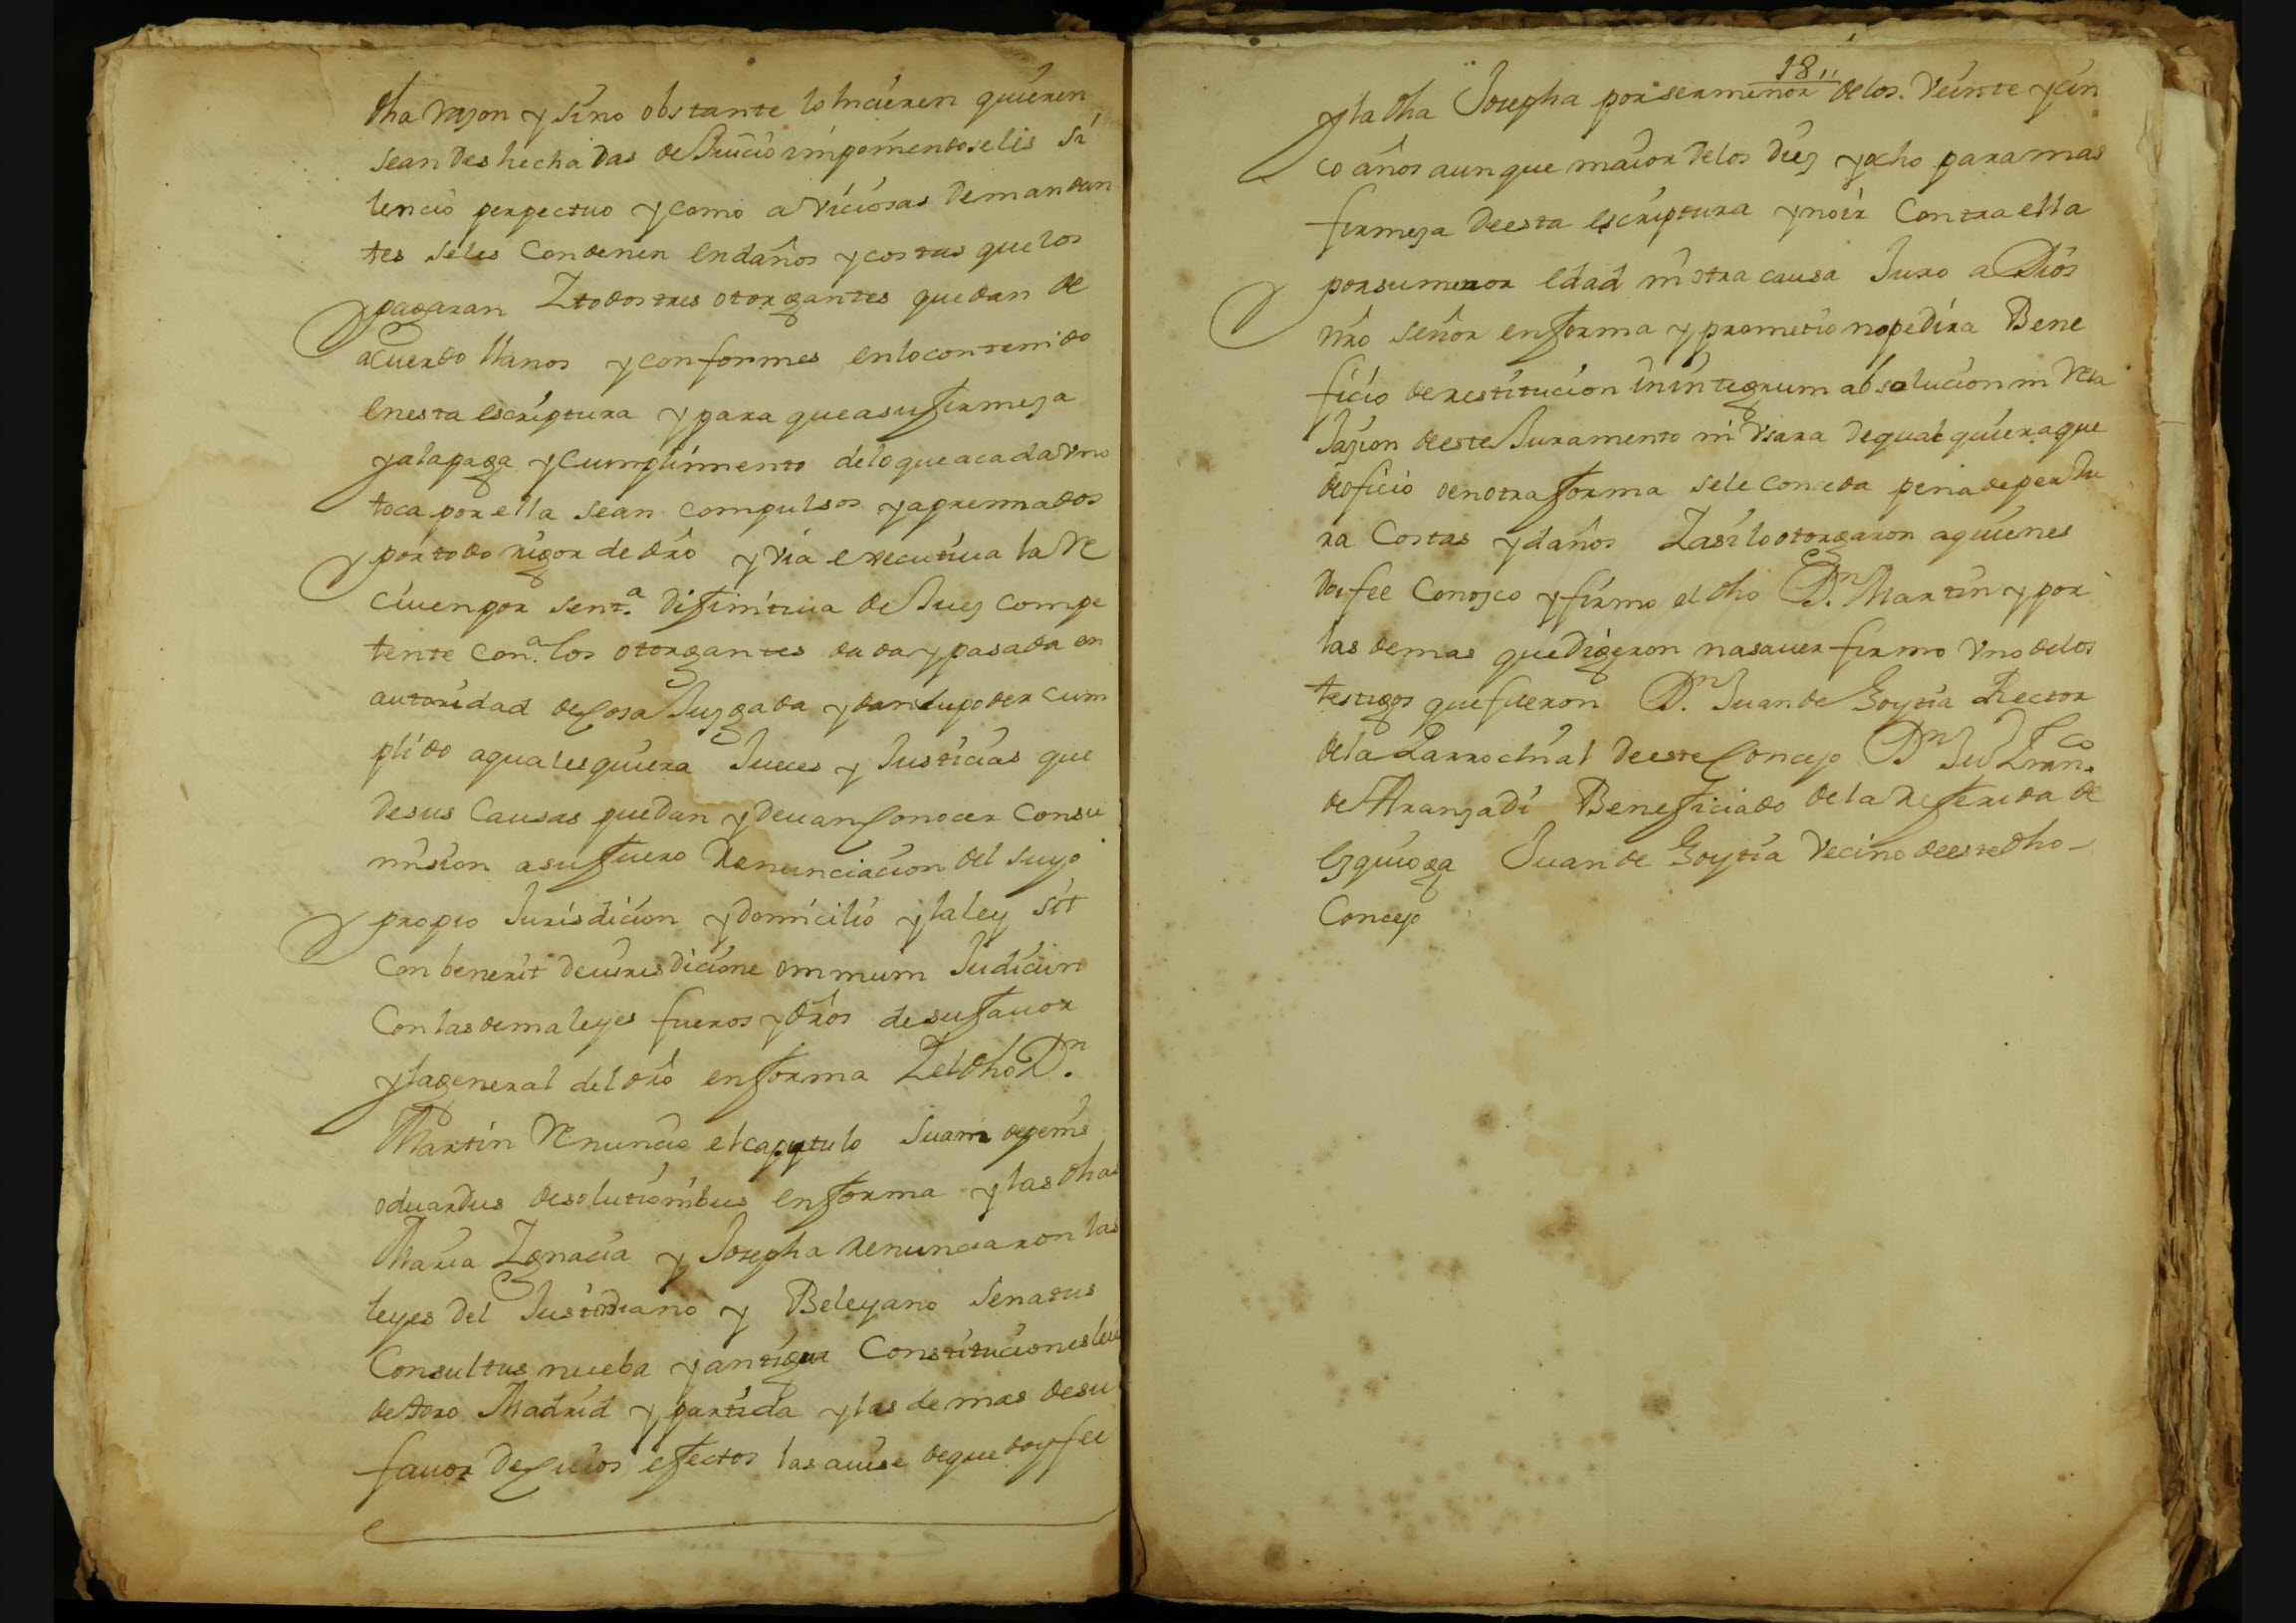 dha razon y sino obstante lo hicieren quieren
sean deshechadas de Juicio imponiendoseles si
lencio perpectuo y como a viciosas demandan
tes seles condenen en daños y costas que los
pagaran Y todos tres otorgantes quedan de
acuerdo llanos y conformes en lo contenido
en esta escriptura y para que a su firmeza
y a la paga y cumplimiento de lo que a cada vno
toca por ella sean compulsos y apremiados
por todo rigor de dro y via executiua la re
ciuen por sent.a difinitiua de Juez compe
tente con.a los otorgantes dada y pasada en
autoridad de cosa Juzgada y dan su poder cum
plido a qualesquiera Jueces y Justicias que
de sus causas puedan y deuan conocer con su
mision a su fuero renunciacion del suyo
propio Jurisdicion y domicilio y la ley sit
conbenerit de iurisdicione omnium Judicun
con las dema leyes fueros y dros de su fauor
y la general del dro en forma Y el dho Dn.
Martin renuncio el capytulo Suam depenis
oduardus desolutionibus en forma y las dhas
Maria Ignacia y Josepha renunciaron las
leyes del Justiniano y Beleyano Senatus
Consultus nueba y antigua Constituciones leie
de toro Madrid y partida y las demas de su
fauor de cuios efectos las auise de que doy fee
18"
y la dha Josepha por ser menor de los veinte y cin
co años aunque maior de los diez y ocho para mas
firmeza de esta escriptura y no ir contra ella
por su menor edad ni otra causa Juro a Dios
nro señor en forma y prometio no pedira Bene
ficio de restitucion in integrum absolucion ni rela
Jazion de este Juramento ni vsara de qual quiera que
de oficio o en otra forma sele conceda pena de perJu
ra costas y daños Y asi lo otorgaron a quienes
doi fee conozco y firmo el dho Dn. Martin y por
las demas que digeron no sauer firmo vno de los
testigos que fueron Dn. Juan de Goytia Rector
de la Parrochial de este Concejo Dn Ju Fran.co
de Aranzadi Beneficiado de la referida de
Ezquioga Juan de Goytia vecino de este dho
Concejo